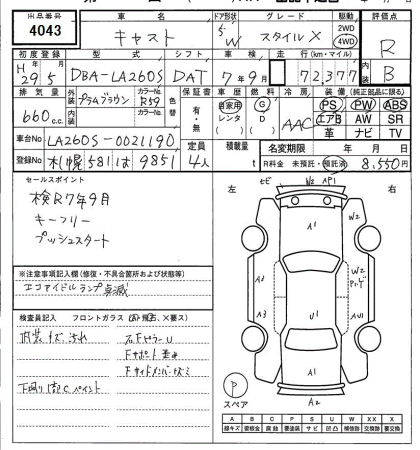 出品番号 車名 ドア形状 グレード 駆動 評価点
4043 キャスト 5/W スタイルX 2WD 4WD R
初度登録 型式 シフト 車検 走行(km・マイル) 内装
H29.5 DBA-LA260S DAT 7年9月 72377 B
排気量 外装色 カラーNo. 色替 保証書 車歴 燃料 冷房 装備(純正部品に限る)
660c.c. プラムブラウン R59 有・無 自家用 レンタ G D AAC PS PW ABS
エアB AW SR
革 ナビ TV
車台No LA260S-0021190 定員 積載量 名変期限 年 月 日
登録No 札幌 581 は 9851 4人 t R料金 未預託・預託済 8,550円
セールスポイント
検R7年9月
キーフリー
プッシュスタート
左 右
※注意事項記入欄(修復・不具合箇所および状態等)
エコアイドルランプ点滅
検査員記入 フロントガラス
内装キズ、汚れ
下廻り
スペア
A1
A2
A3
U1
W2
AU1
A2
P
A B C F S U W X XX
線キズ 塗装色 腐食 要塗装 サビ 凹凸 補修跡 交換跡 要交換